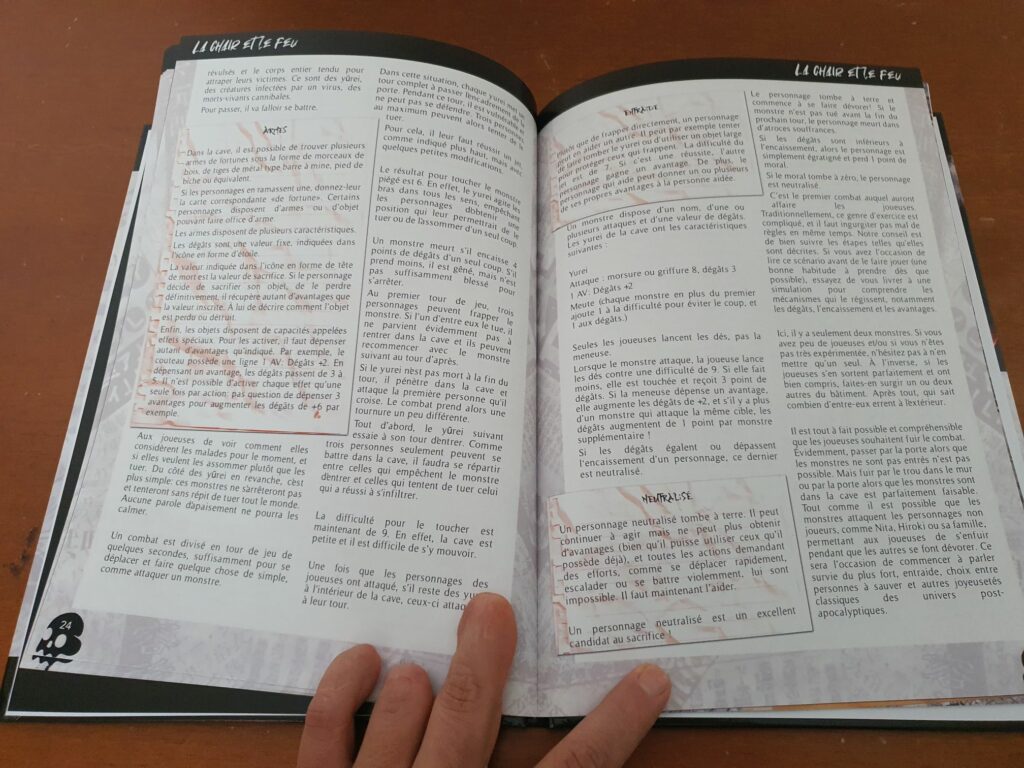 LA CHAIR ET LE FEU
révulsés et le corps entier tendu pour
attraper leurs victimes. Ce sont des yūrei,
des créatures infectées par un virus, des
morts-vivants cannibales.
Pour passer, il va falloir se battre.
ARMES
Dans la cave, il est possible de trouver plusieurs
armes de fortunes sous la forme de morceaux de
bois, de tiges de métal type barre à mine, pied de
biche ou équivalent.
Si les personnages en ramassent une, donnez-leur
la carte correspondante «de fortune». Certains
personnages disposent d'armes ou d'objet
pouvant faire office d'arme
Les armes disposent de plusieurs caractéristiques.
Les dégâts sont une valeur fixe, indiquées dans
l'icône en forme d'étoile.
La valeur indiquée dans l'icône en forme de tête
de mort est la valeur de sacrifice. Si le personnage
décide de sacrifier son objet, de le perdre
définitivement, il récupère autant d'avantages que
la valeur inscrite. À lui de décrire comment l'objet
est perdu ou détruit.
Enfin, les objets disposent de capacités appelées
effets spéciaux. Pour les activer, il faut dépenser
autant d'avantages qu'indiqué. Par exemple, le
couteau possède une ligne 1 AV: Dégâts +2. En
dépensant un avantage, les dégâts passent de 3 à
5. Il n'est possible d'activer chaque effet qu'une
seule fois par action, pas question de dépenser 3
avantages pour augmenter les dégâts de +6 par
exemple.
Aux joueuses de voir comment elles
considèrent les malades pour le moment, et
si elles veulent les assommer plutôt que les
tuer. Du côté des yūrei en revanche, c'est
plus simple: ces monstres ne s'arrêteront pas
et tenteront sans répit de tuer tout le monde.
Aucune parole d'apaisement ne pourra les
calmer.
Un combat est divisé en tour de jeu de
quelques secondes, suffisamment pour se
déplacer et faire quelque chose de simple,
comme attaquer un monstre.
24
Dans cette situation, chaque yurei met un
tour complet à passer l'encadrement de la
porte. Pendant ce tour, il est vulnérable et
ne peut pas se défendre. Trois personnages
au maximum peuvent alors tenter de le
tuer.
Pour cela, il leur faut réussir un jet,
comme indiqué plus haut, mais avec
quelques petites modifications.
Le résultat pour toucher le monstre
piégé est 6. En effet, le yurei agite les
bras dans tous les sens, empêchant
les personnages d'obtenir une
position qui leur permettrait de le
tuer ou de l'assommer d'un seul coup.
Un monstre meurt s'il encaisse 4
points de dégâts d'un seul coup. S'il
prend moins, il est gêné, mais n'est
pas suffisamment blessé pour
s'arrêter.
Au premier tour de jeu, trois
personnages peuvent frapper le
monstre. Si l'un d'entre eux le tue, il
ne parvient évidemment pas à
rentrer dans la cave et ils peuvent
recommencer avec le monstre
suivant au tour d'après.
Si le yurei n'est pas mort à la fin du
tour, il pénètre dans la cave et
attaque la première personne qu'il
croise. Le combat prend alors une
tournure un peu différente.
Tout d'abord, le yūrei suivant
essaie à son tour d'entrer. Comme
trois personnes seulement peuvent se
battre dans la cave, il faudra se répartir
entre celles qui empêchent le monstre
d'entrer et celles qui tentent de tuer celui
qui a réussi à s'infiltrer.
La difficulté pour le toucher est
maintenant de 9. En effet, la cave est
petite et il est difficile de s'y mouvoir.
Une fois que les personnages des
joueuses ont attaqué, s'il reste des
à l'intérieur de la cave, ceux-ci
à leur tour.
LA CHAIR ET LE FEU
ENTRAIDE
Plutôt que de frapper directement, un personnage
peut en aider un autre. Il peut par exemple tenter
de faire tomber le yurei ou d'utiliser un objet large
pour protéger ceux qui frappent. La difficulté du
jet est de 7. Si c'est une réussite, l'autre
personnage gagne un avantage. De plus, le
personnage qui aide peut donner un ou plusieurs
de ses propres avantages à la personne aidée.
Un monstre dispose d'un nom, d'une ou
plusieurs attaques et d'une valeur de dégâts.
Les yurei de la cave ont les caractéristiques
suivantes :
Yurei
Attaque : morsure ou griffure 8, dégâts 3
1 AV: Dégâts +2
Meute (chaque monstre en plus du premier
ajoute 1 à la difficulté pour éviter le coup, et
1 aux dégâts.)
Seules les joueuses lancent les dés, pas la
meneuse.
Lorsque le monstre attaque, la joueuse lance
les dés contre une difficulté de 9. Si elle fait
moins, elle est touchée et reçoit 3 point de
dégâts. Si la meneuse dépense un avantage,
elle augmente les dégâts de +2, et s'il y a plus
d'un monstre qui attaque la même cible, les
dégâts augmentent de 1 point par monstre
supplémentaire !
Si les dégâts égalent ou dépassent
l'encaissement d'un personnage, ce dernier
est neutralisé.
NEUTRALISÉ
Un personnage neutralisé tombe à terre. Il peut
continuer à agir mais ne peut plus obtenir
d'avantages (bien qu'il puisse utiliser ceux qu'il
possède déjà), et toutes les actions demandant
des efforts, comme se déplacer rapidement,
escalader ou se battre violemment, lui sont
impossible. Il faut maintenant l'aider.
Un personnage neutralisé est un excellent
candidat au sacrifice !
Le personnage tombe à terre et
commence à se faire dévorer! Si le
monstre n'est pas tué avant la fin du
prochain tour, le personnage meurt dans
d'atroces souffrances.
Si les dégâts sont inférieurs à
l'encaissement, alors le personnage est
simplement égratigné et perd 1 point de
moral.
Si le moral tombe à zéro, le personnage
est neutralisé.
C'est le premier combat auquel auront
affaire les joueuses.
Traditionnellement, ce genre d'exercice est
compliqué, et il faut ingurgiter pas mal de
règles en même temps. Notre conseil est
de bien suivre les étapes telles qu'elles
sont décrites. Si vous avez l'occasion de
lire ce scénario avant de le faire jouer (une
bonne habitude à prendre dès que
possible), essayez de vous livrer à une
simulation pour comprendre les
mécanismes qui le régissent, notamment
les dégâts, l'encaissement et les avantages.
Ici, il y a seulement deux monstres. Si vous
avez peu de joueuses et/ou si vous n'êtes
pas très expérimentée, n'hésitez pas à n'en
mettre qu'un seul. À l'inverse, si les
joueuses s'en sortent parfaitement et ont
bien compris, faites-en surgir un ou deux
autres du bâtiment. Après tout, qui sait
combien d'entre-eux errent à l'extérieur.
Il est tout à fait possible et compréhensible
que les joueuses souhaitent fuir le combat.
Évidemment, passer par la porte alors que
les monstres ne sont pas entrés n'est pas
possible. Mais fuir par le trou dans le mur
ou par la porte alors que les monstres sont
dans la cave est parfaitement faisable.
Tout comme il est possible que les
monstres attaquent les personnages non
joueurs, comme Nita, Hiroki ou sa famille,
permettant aux joueuses de s'enfuir
pendant que les autres se font dévorer. Ce
sera l'occasion de commencer à parler
survie du plus fort, entraide, choix entre
personnes à sauver et autres joyeusetés
classiques des univers post-
apocalyptiques.